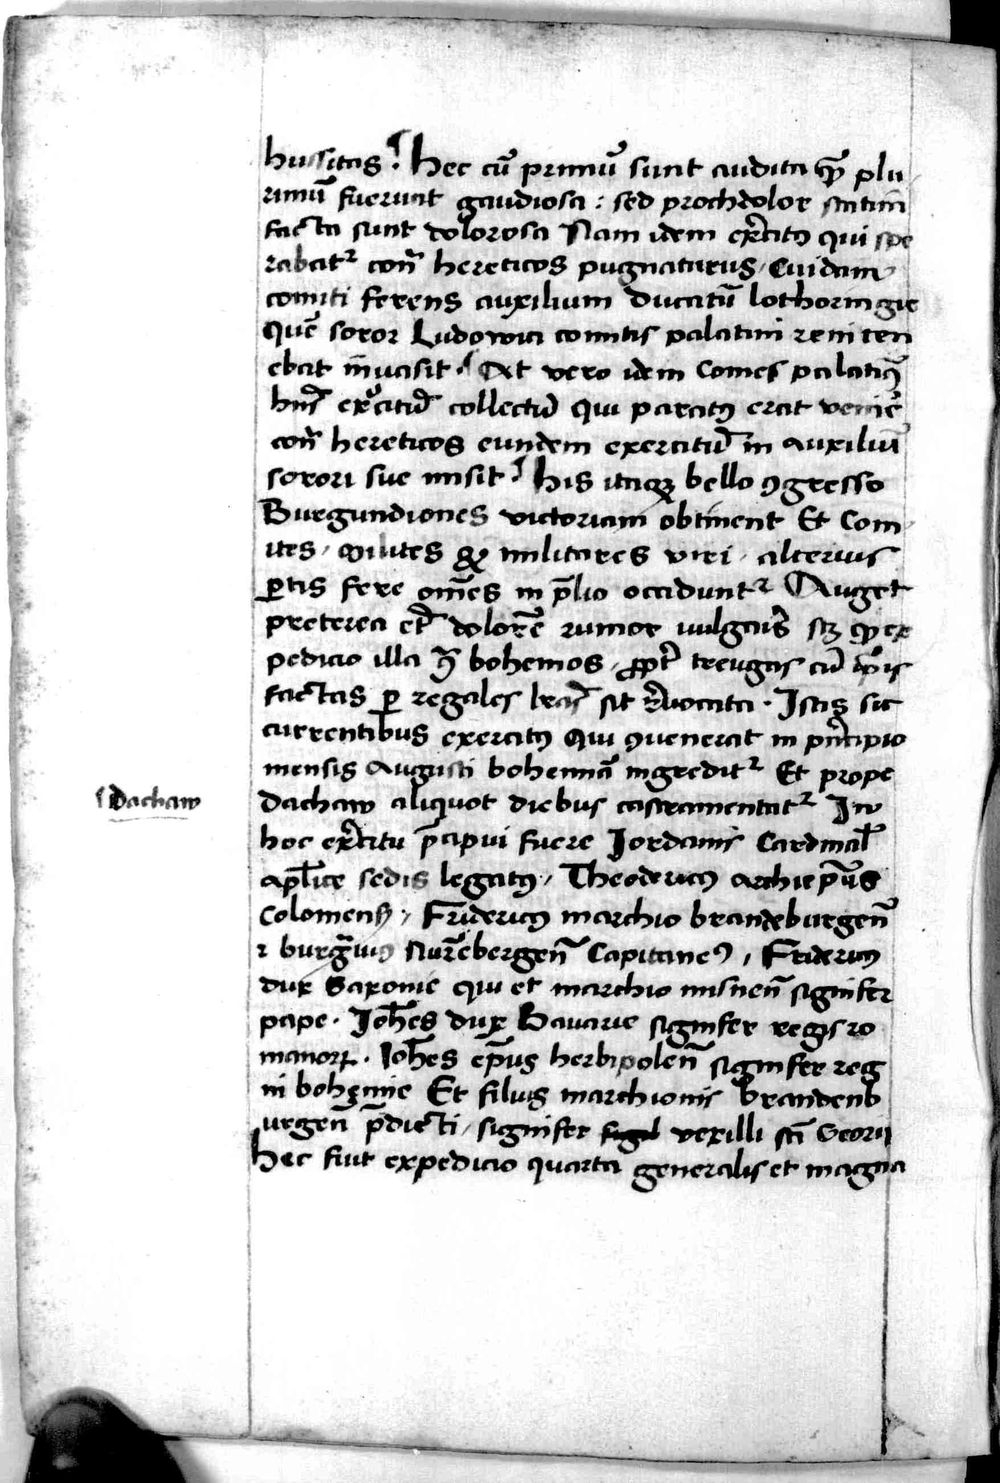 hussitas. Hec cū primū sunt audita qꝫ plu
rimū fuerunt gaudiosa : sed prochdolor statim
facta sunt dolorosa Nam idem exc̄itꝰ qui spe
rabatʳ cont̄ hereticos pugnaturus, Cuidam
comiti ferens auxilium Ducatū lothoringie
quē soror Ludowici comitis palatini reni ten
ebat īnuasit. At vero idem Comes palatinꝰ
exc̄itū collectū qui paratꝰ erat
cont̄ hereticos eundem exercitū in auxiliū
sorori sue misit. His itaqꝫ bello ꝯgresso
Burgundiones victoriam obtinent Et Com
ites, milites qꝫ militares viri, alterius
ꝑtis fere om̄es in p̄lio occiduntʳ Auget
preterea dolorē rumor vulgaris scꝫ ex
pedicio illa bohemos, ꝓpt̄ treugas cū ip̄is
factas ꝑ regales lr̄as sit revocata. Istis sic
currentibus exercitꝰ Qui ꝯuenerat in principio
mensis Augusti bohemiā ingreditʳ Et prope
Dachaw aliquot diebus castramentatʳ In
hoc exc̄itu p̄cipui fuere Jordanis Cardinal̄
apl̄ice sedis legatꝰ, Theodericꝰ Archiep̄us
Coloniensis, Fridericꝰ marchio brandeburgen̄
⁊ burgrauiꝰ Nurēbergen̄ Capitaneꝰ, Fridericꝰ
dux Saxonie qui et marchio misnen̄ signifer
pape. Joh̄es dux Bauarie signifer regis ro
manorꝝ. Joh̄es ep̄us herbipolen̄ signifer reg
ni bohemie Et filius marchionis brandenb
urgen̄ p̄dicti, signifer vexilli sc̄i Georii
Hec fuit expedicio quarta generalis et magna
Dachaw